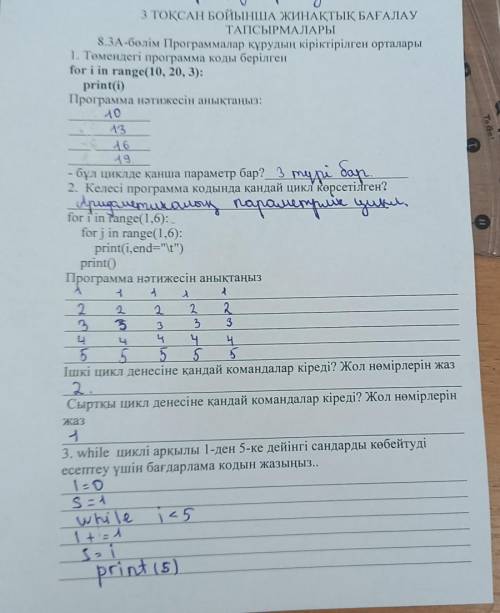 3 ТОҚСАН БОЙЫНША ЖИНАҚТЫҚ БАҒАЛАУ
ТАПСЫРМАЛАРЫ
8.3А-бөлім Программалар құрудың кіріктірілген орталары
1. Төмендегі программа коды берілген
for i in range(10, 20, 3):
print(i)
Программа нәтижесін анықтаңыз:
10
13
16
19
- бұл циклде қанша параметр бар? 3 түрі бар
2. Келесі программа кодында қандай цикл көрсетілген?
параметрлік цикл
for i in range(1,6):
for j in range(1,6):
print(i,end="\t")
print()
Программа нәтижесін анықтаңыз
1 1 1 1 1
2 2 2 2 2
3 3 3 3 3
4 4 4 4 4
5 5 5 5 5
Ішкі цикл денесіне қандай командалар кіреді? Жол нөмірлерін жаз
2.
Сыртқы цикл денесіне қандай командалар кіреді? Жол нөмірлерін
жаз
1
3. while циклі арқылы 1-ден 5-ке дейінгі сандарды көбейтуді
есептеу үшін бағдарлама кодын жазыңыз..
I=0
S=1
while i<5
I+=1
S=i
print(5)